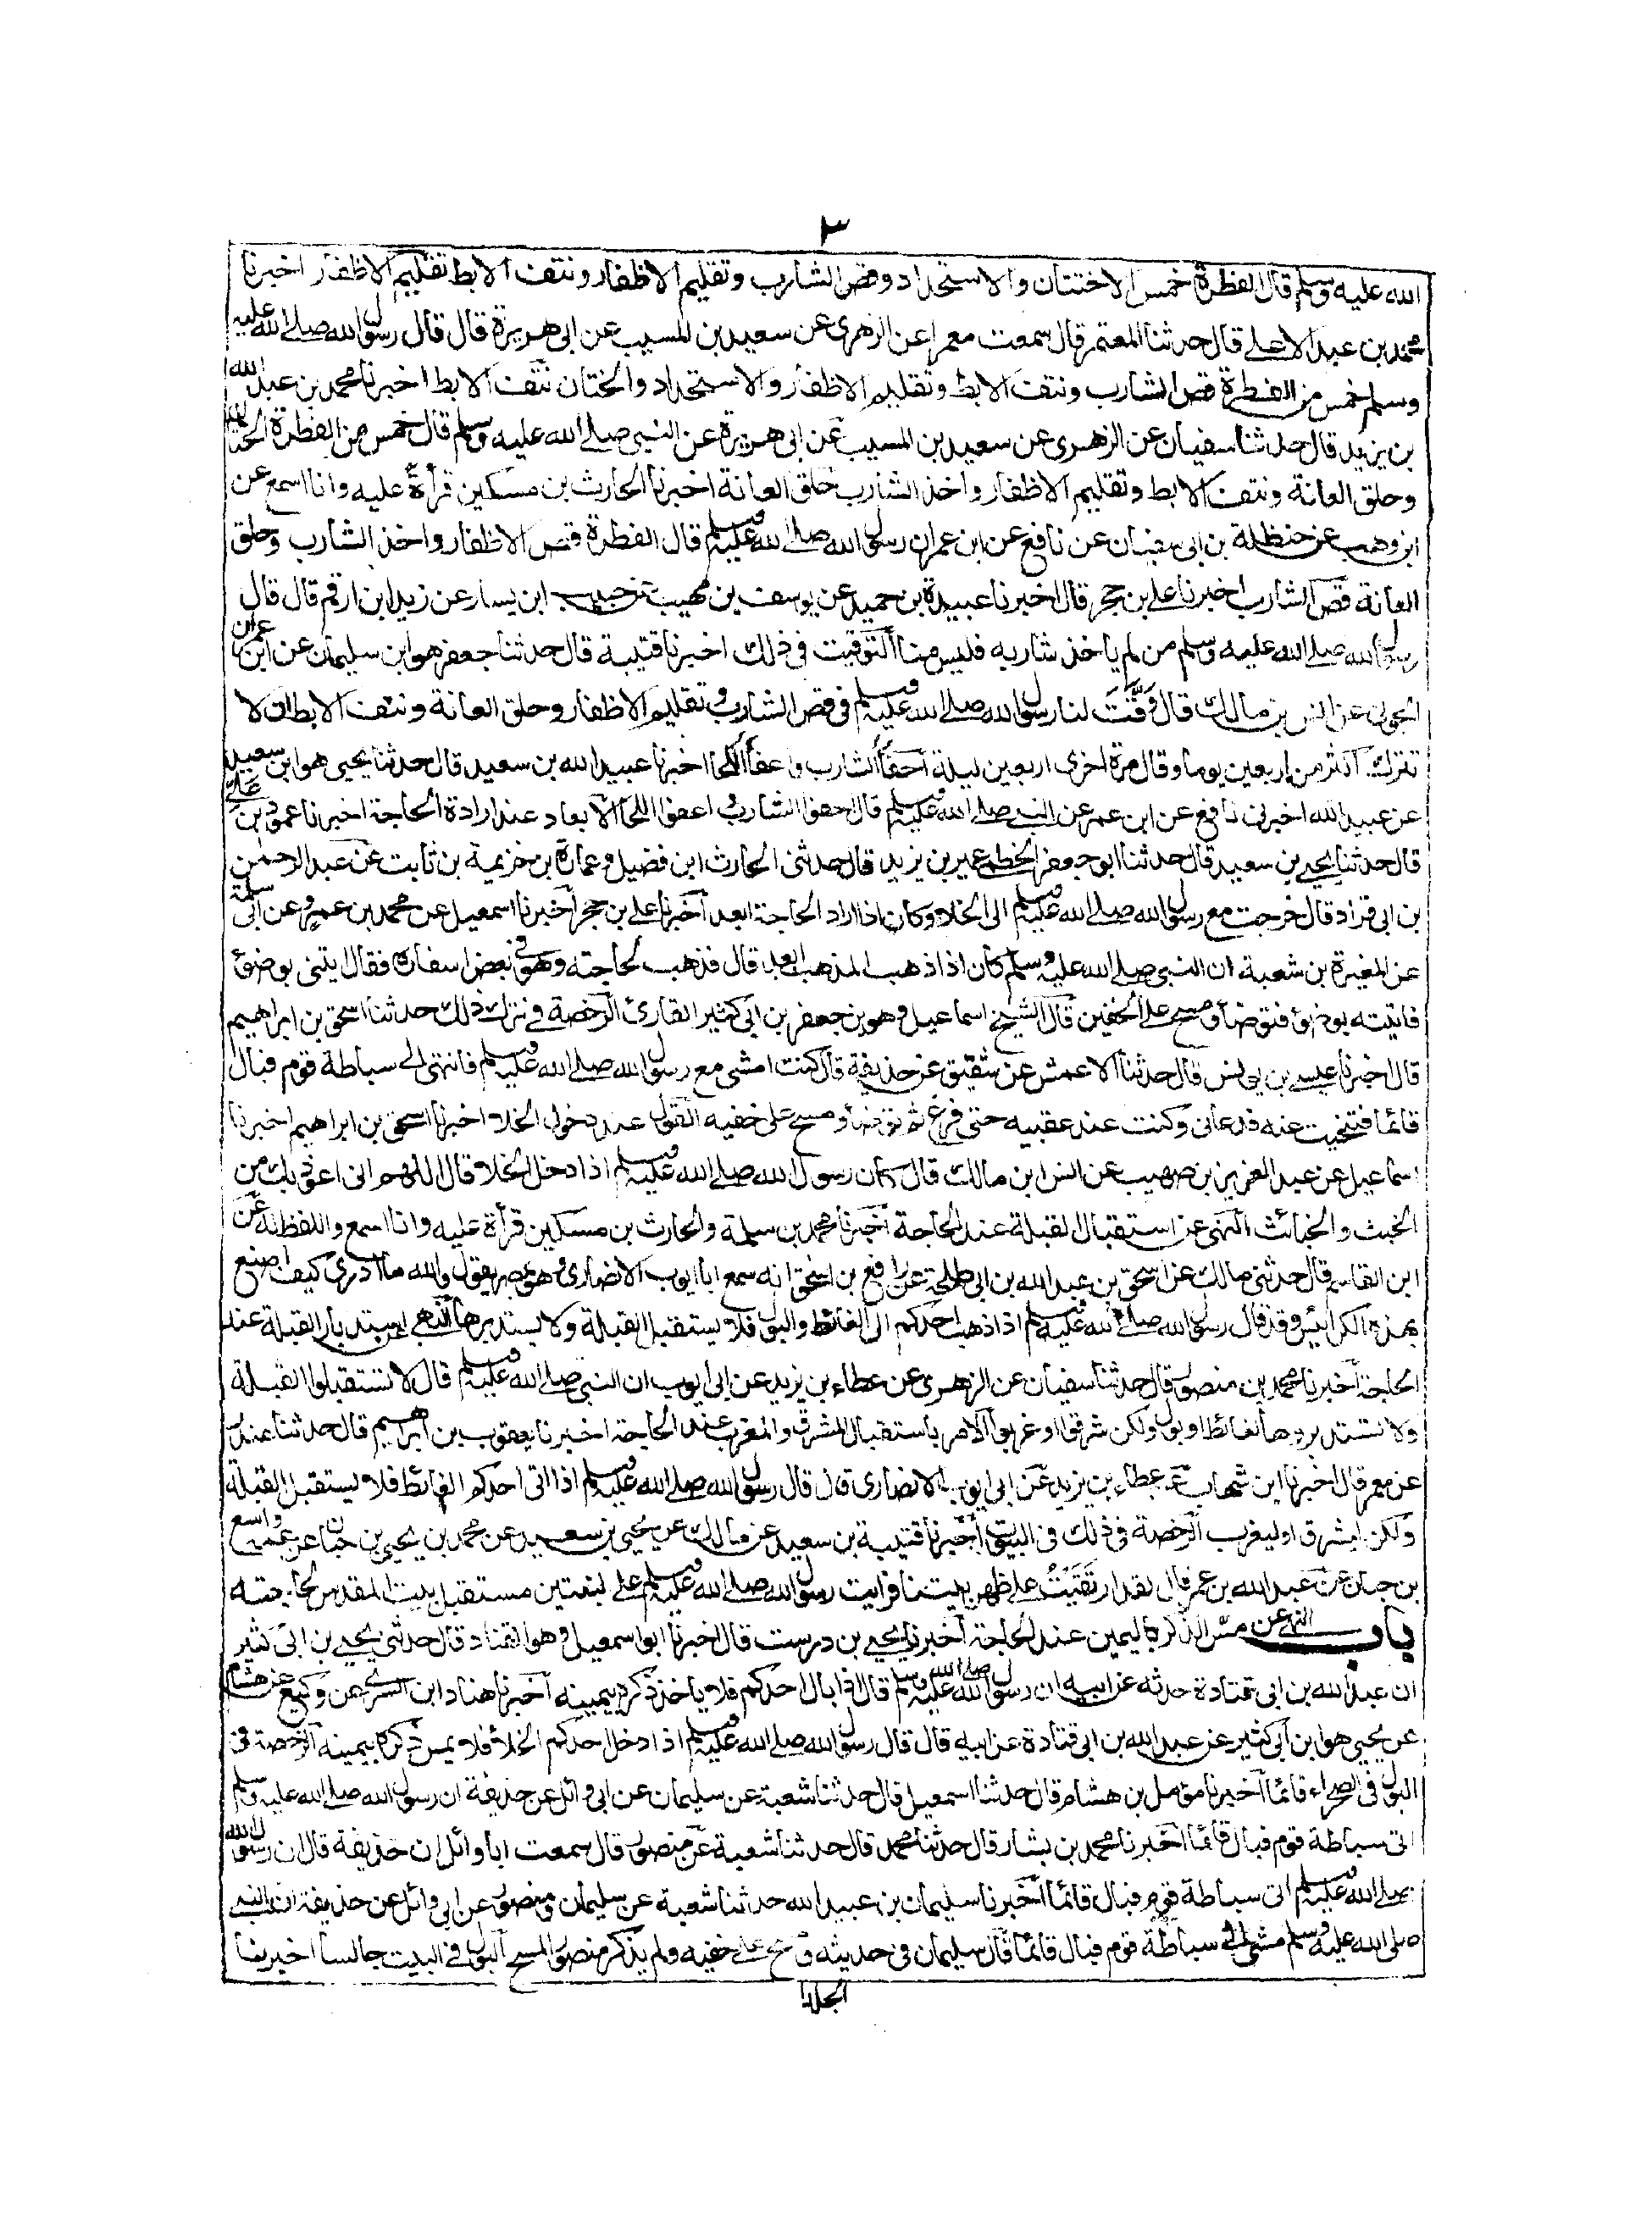 ٣
الله عليه وسلم قال الفطرة خمس الاختتان والاستحداد وقص الشارب وتقليم الاظفار ونتف الابط تقليم الاظفار اخبرنا
محمد بن عبد الاعلى قال حدثنا المعتمر قال سمعت معمرا عن الزهرى عن سعيد بن المسيب عن ابى هريرة قال قال رسول الله صلى الله عليه
وسلم خمس من الفطرة قص الشارب ونتف الابط وتقليم الاظفار والاستحداد والختان نتف الابط اخبرنا محمد بن عبد الله
بن يزيد قال حدثنا سفيان عن الزهرى عن سعيد بن المسيب عن ابى هريرة عن النبى صلى الله عليه وسلم قال خمس من الفطرة الختان
وحلق العانة ونتف الابط وتقليم الاظفار واخذ الشارب حلق العانة اخبرنا الحارث بن مسكين قرأة عليه وانا اسمع عن
ابن وهب عن حنظلة بن ابى سفيان عن نافع عن ابن عمر ان رسول الله صلى الله عليه وسلم قال الفطرة قص الاظفار واخذ الشارب وحلق
العانة قص الشارب اخبرنا على بن حجر قال اخبرنا عبيدة بن حميد عن يوسف بن صهيب عن حبيب ابن يسار عن زيد ابن ارقم قال قال
رسول الله صلى الله عليه وسلم من لم ياخذ شاربه فليس منا التوقيت فى ذلك اخبرنا قتيبة قال حدثنا جعفر هو ابن سليمان عن ابى عمران
الجونى عن انس بن مالك قال وَقَّتَ لنا رسول الله صلى الله عليه وسلم فى قص الشارب وتقليم الاظفار وحلق العانة ونتف الابط ان لا
نترك اكثر من اربعين يوما وقال مرة اخرى اربعين ليلة احفأ الشارب واعفأ اللحى اخبرنا عبيد الله بن سعيد قال حدثنا يحيى هو ابن سعيد
عن عبيد الله اخبرنى نافع عن ابن عمر عن النبى صلى الله عليه وسلم قال احفوا الشارب واعفوا اللحى الابعاد عند ارادة الحاجة اخبرنا عمرو بن على
قال حدثنا يحيى بن سعيد قال حدثنا ابو جعفر الخطمى عمير بن يزيد قال حدثنى الحارث ابن فضيل وعمارة بن خزيمة بن ثابت عن عبد الرحمن
بن ابى قراد قال خرجت مع رسول الله صلى الله عليه وسلم الى الخلاء وكان اذا اراد الحاجة ابعد اخبرنا على بن حجر اخبرنا اسمعيل عن محمد بن عمرو عن ابى سلمة
عن المغيرة بن شعبة ان النبى صلى الله عليه وسلم كان اذا ذهب المذهب ابعد قال فذهب لحاجته وهو فى بعض اسفاره فقال ايتنى بوضوء
فاتيته بوضوء فتوضأ ومسح على الخفين قال الشيخ اسماعيل وهو بن جعفر بن ابى كثير القارئ الرخصة فى ترك ذلك حدثنا اسحق بن ابراهيم
قال اخبرنا عيسى بن يونس قال حدثنا الاعمش عن شقيق عن حذيفة قال كنت امشى مع رسول الله صلى الله عليه وسلم فانتهى الى سباطة قوم فبال
قائما فتنحيت عنه فدعانى وكنت عند عقبيه حتى فرغ ثم توضأ ومسح على خفيه القول عند دخول الخلاء اخبرنا اسحق بن ابراهيم اخبرنا
اسماعيل عن عبد العزيز بن صهيب عن انس ابن مالك قال كان رسول الله صلى الله عليه وسلم اذا دخل الخلاء قال اللهم انى اعوذ بك من
الخبث والخبائث النهى عن استقبال القبلة عند الحاجة اخبرنا محمد بن سلمة والحارث بن مسكين قرأة عليه وانا اسمع واللفظ له عن
ابن القاسم قال حدثنى مالك عن اسحق بن عبد الله بن ابى طلحة عن رافع بن اسحق انه سمع ابا ايوب الانصارى وهو بمصر يقول والله ما ادرى كيف اصنع
بهذه الكرائيس وقد قال رسول الله صلى الله عليه وسلم اذا ذهب احدكم الى الغائط والبول فلا يستقبل القبلة ولا يستدبرها النهى عن استدبار القبلة عند
الحاجة اخبرنا محمد بن منصور قال حدثنا سفيان عن الزهرى عن عطاء بن يزيد عن ابى ايوب ان النبى صلى الله عليه وسلم قال لا تستقبلوا القبلة
ولا تستدبروها لغائط او بول ولكن شرقوا او غربوا الامر باستقبال المشرق والمغرب عند الحاجة اخبرنا يعقوب بن ابراهيم قال حدثنا غندر
عن معمر قال اخبرنا ابن شهاب عن عطاء بن يزيد عن ابى ايوب الانصارى قال قال رسول الله صلى الله عليه وسلم اذا اتى احدكم الغائط فلا يستقبل القبلة
ولكن ليشرق او ليغرب الرخصة فى ذلك فى البيوت اخبرنا قتيبة بن سعيد عن مالك عن يحيى بن سعيد عن محمد بن يحيى بن حبان عن عمه واسع
بن حبان عن عبد الله بن عمر قال لقد ارتقيت على ظهر بيتنا فرايت رسول الله صلى الله عليه وسلم على لبنتين مستقبل بيت المقدس لحاجته
باب النهى عن مس الذكر باليمين عند الحاجة اخبرنا يحيى بن درست قال اخبرنا ابو اسمعيل وهو القناد قال حدثنى يحيى بن ابى كثير
ان عبد الله بن ابى قتادة حدثه عن ابيه ان رسول الله صلى الله عليه وسلم قال اذا بال احدكم فلا ياخذ ذكره بيمينه اخبرنا هناد ابن السرى عن وكيع عن هشام
عن يحيى هو ابن ابى كثير عن عبد الله بن ابى قتادة عن ابيه قال قال رسول الله صلى الله عليه وسلم اذا دخل احدكم الخلاء فلا يمس ذكره بيمينه الرخصة فى
البول فى الصحراء قائما اخبرنا مؤمل بن هشام قال حدثنا اسمعيل قال حدثنا شعبة عن سليمان عن ابى وائل عن حذيفة ان رسول الله صلى الله عليه وسلم
اتى سباطة قوم فبال قائما اخبرنا محمد بن بشار قال حدثنا محمد قال حدثنا شعبة عن منصور قال سمعت ابا وائل ان حذيفة قال ان رسول الله
صلى الله عليه وسلم اتى سباطة قوم فبال قائما اخبرنا سليمان بن عبيد الله حدثنا شعبة عن سليمان ومنصور عن ابى وائل عن حذيفة ان النبى
صلى الله عليه وسلم مشى الى سباطة قوم فبال قائما قال سليمان فى حديثه ومسح على خفيه ولم يذكر منصور المسح البول فى البيت جالسا اخبرنا